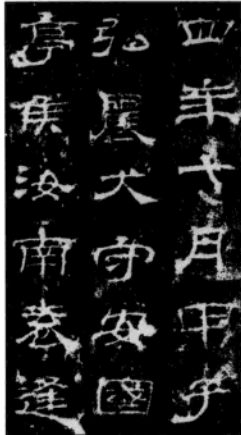 四年七月甲子
弘農大守安國
亭侯汝南袁逢